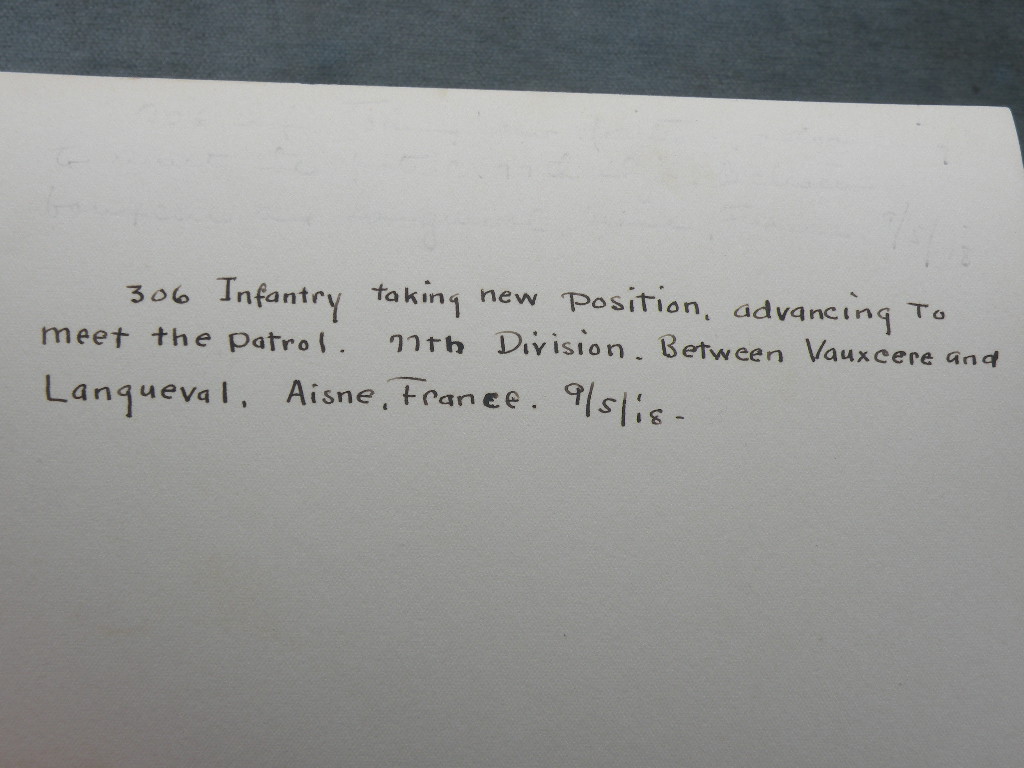 306 Infantry taking new position, advancing To
meet the patrol. 77th Division. Between Vauxcere and
Lanqueval, Aisne, France. 9/5/18-